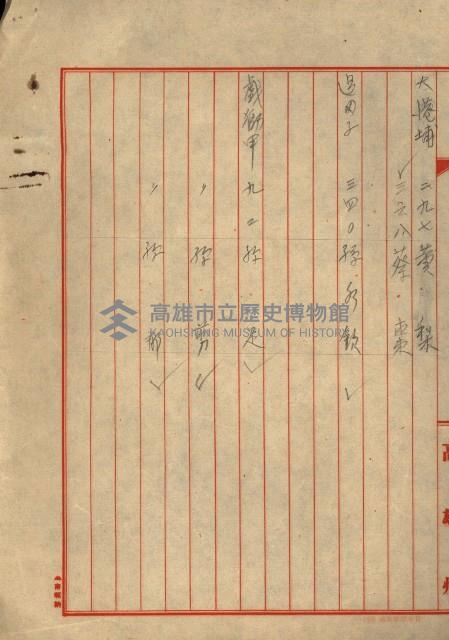 大港埔 二九七 黄 梨
三六八 蔡 東
過田子 三四〇 孫 水欽
戲獅甲 九二 孫 足
〃 孫 剪
〃 孫
高雄州
高雄市立歷史博物館
KAOHSIUNG MUSEUM OF HISTORY